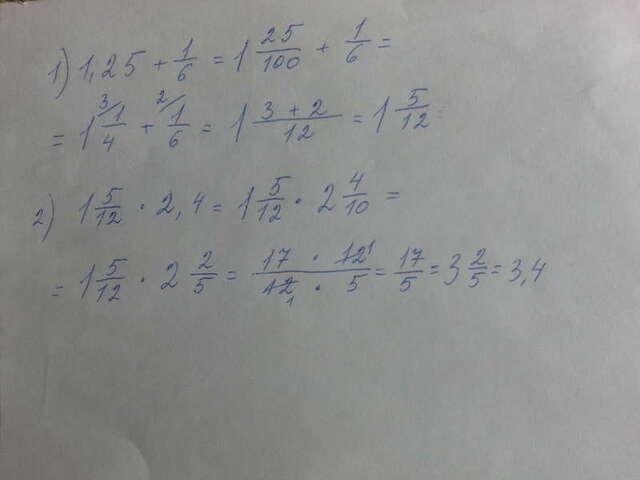 1) 1,25 + 1/6 = 1 25/100 + 1/6 =
= 1 1/4 ³ + 1/6 ² = 1 (3 + 2)/12 = 1 5/12
2) 1 5/12 · 2,4 = 1 5/12 · 2 4/10 =
= 1 5/12 · 2 2/5 = (17 · 12 ¹)/(12 ₁ · 5) = 17/5 = 3 2/5 = 3,4